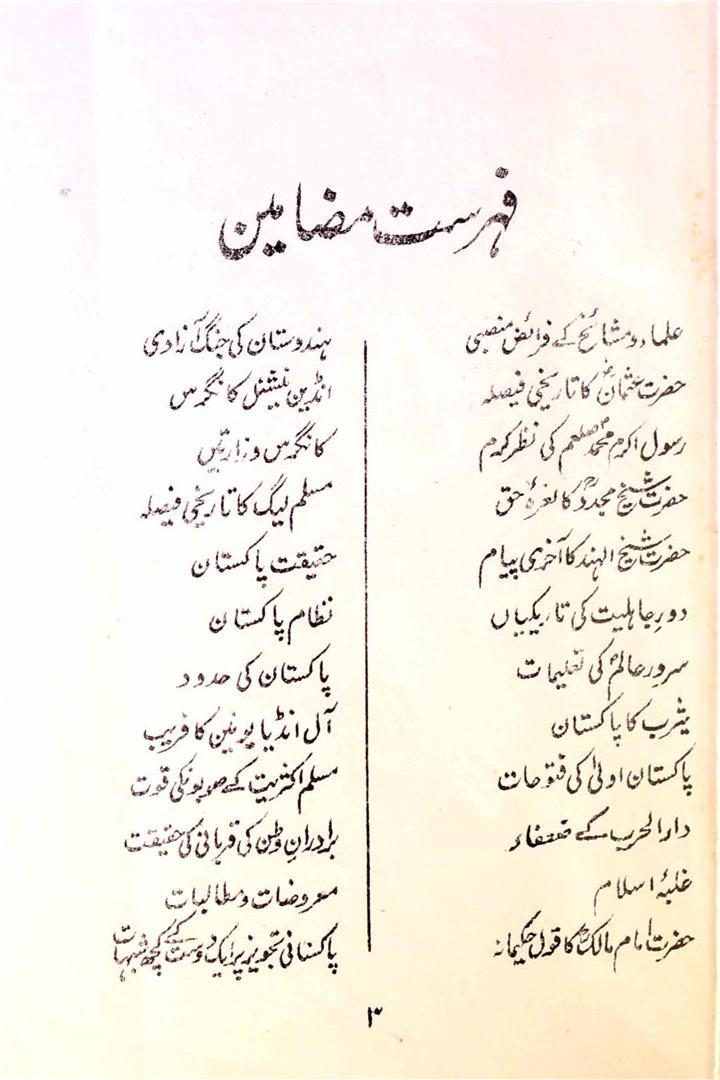 فہرست مضامین
علماء و مشائخ کے فرائض منصبی
حضرت عثمانؓ کا تاریخی فیصلہ
رسول اکرم محمد صلعم کی نظر کرم
حضرت شیخ مجددؒ کا نعرۂ حق
حضرت شیخ الہند کا آخری پیام
دورِ جاہلیت کی تاریکیاں
سرورِ عالمؐ کی تعلیمات
یثرب کا پاکستان
پاکستان اولیٰ کی فتوحات
دارالحرب کے ضعفاء
غلبۂ اسلام
حضرت امام مالکؒ کا قول حکیمانہ
ہندوستان کی جنگ آزادی
انڈین نیشنل کانگرس
کانگرس وزارتیں
مسلم لیگ کا تاریخی فیصلہ
حقیقت پاکستان
نظام پاکستان
پاکستان کی حدود
آل انڈیا یونین کا فریب
مسلم اکثریت کے صوبونکی قوت
برادرانِ وطن کی قربانی کی حقیقت
معروضات و مطالبات
پاکستانی تجویز پر ایک دوست کے کچھ شبہات
۳